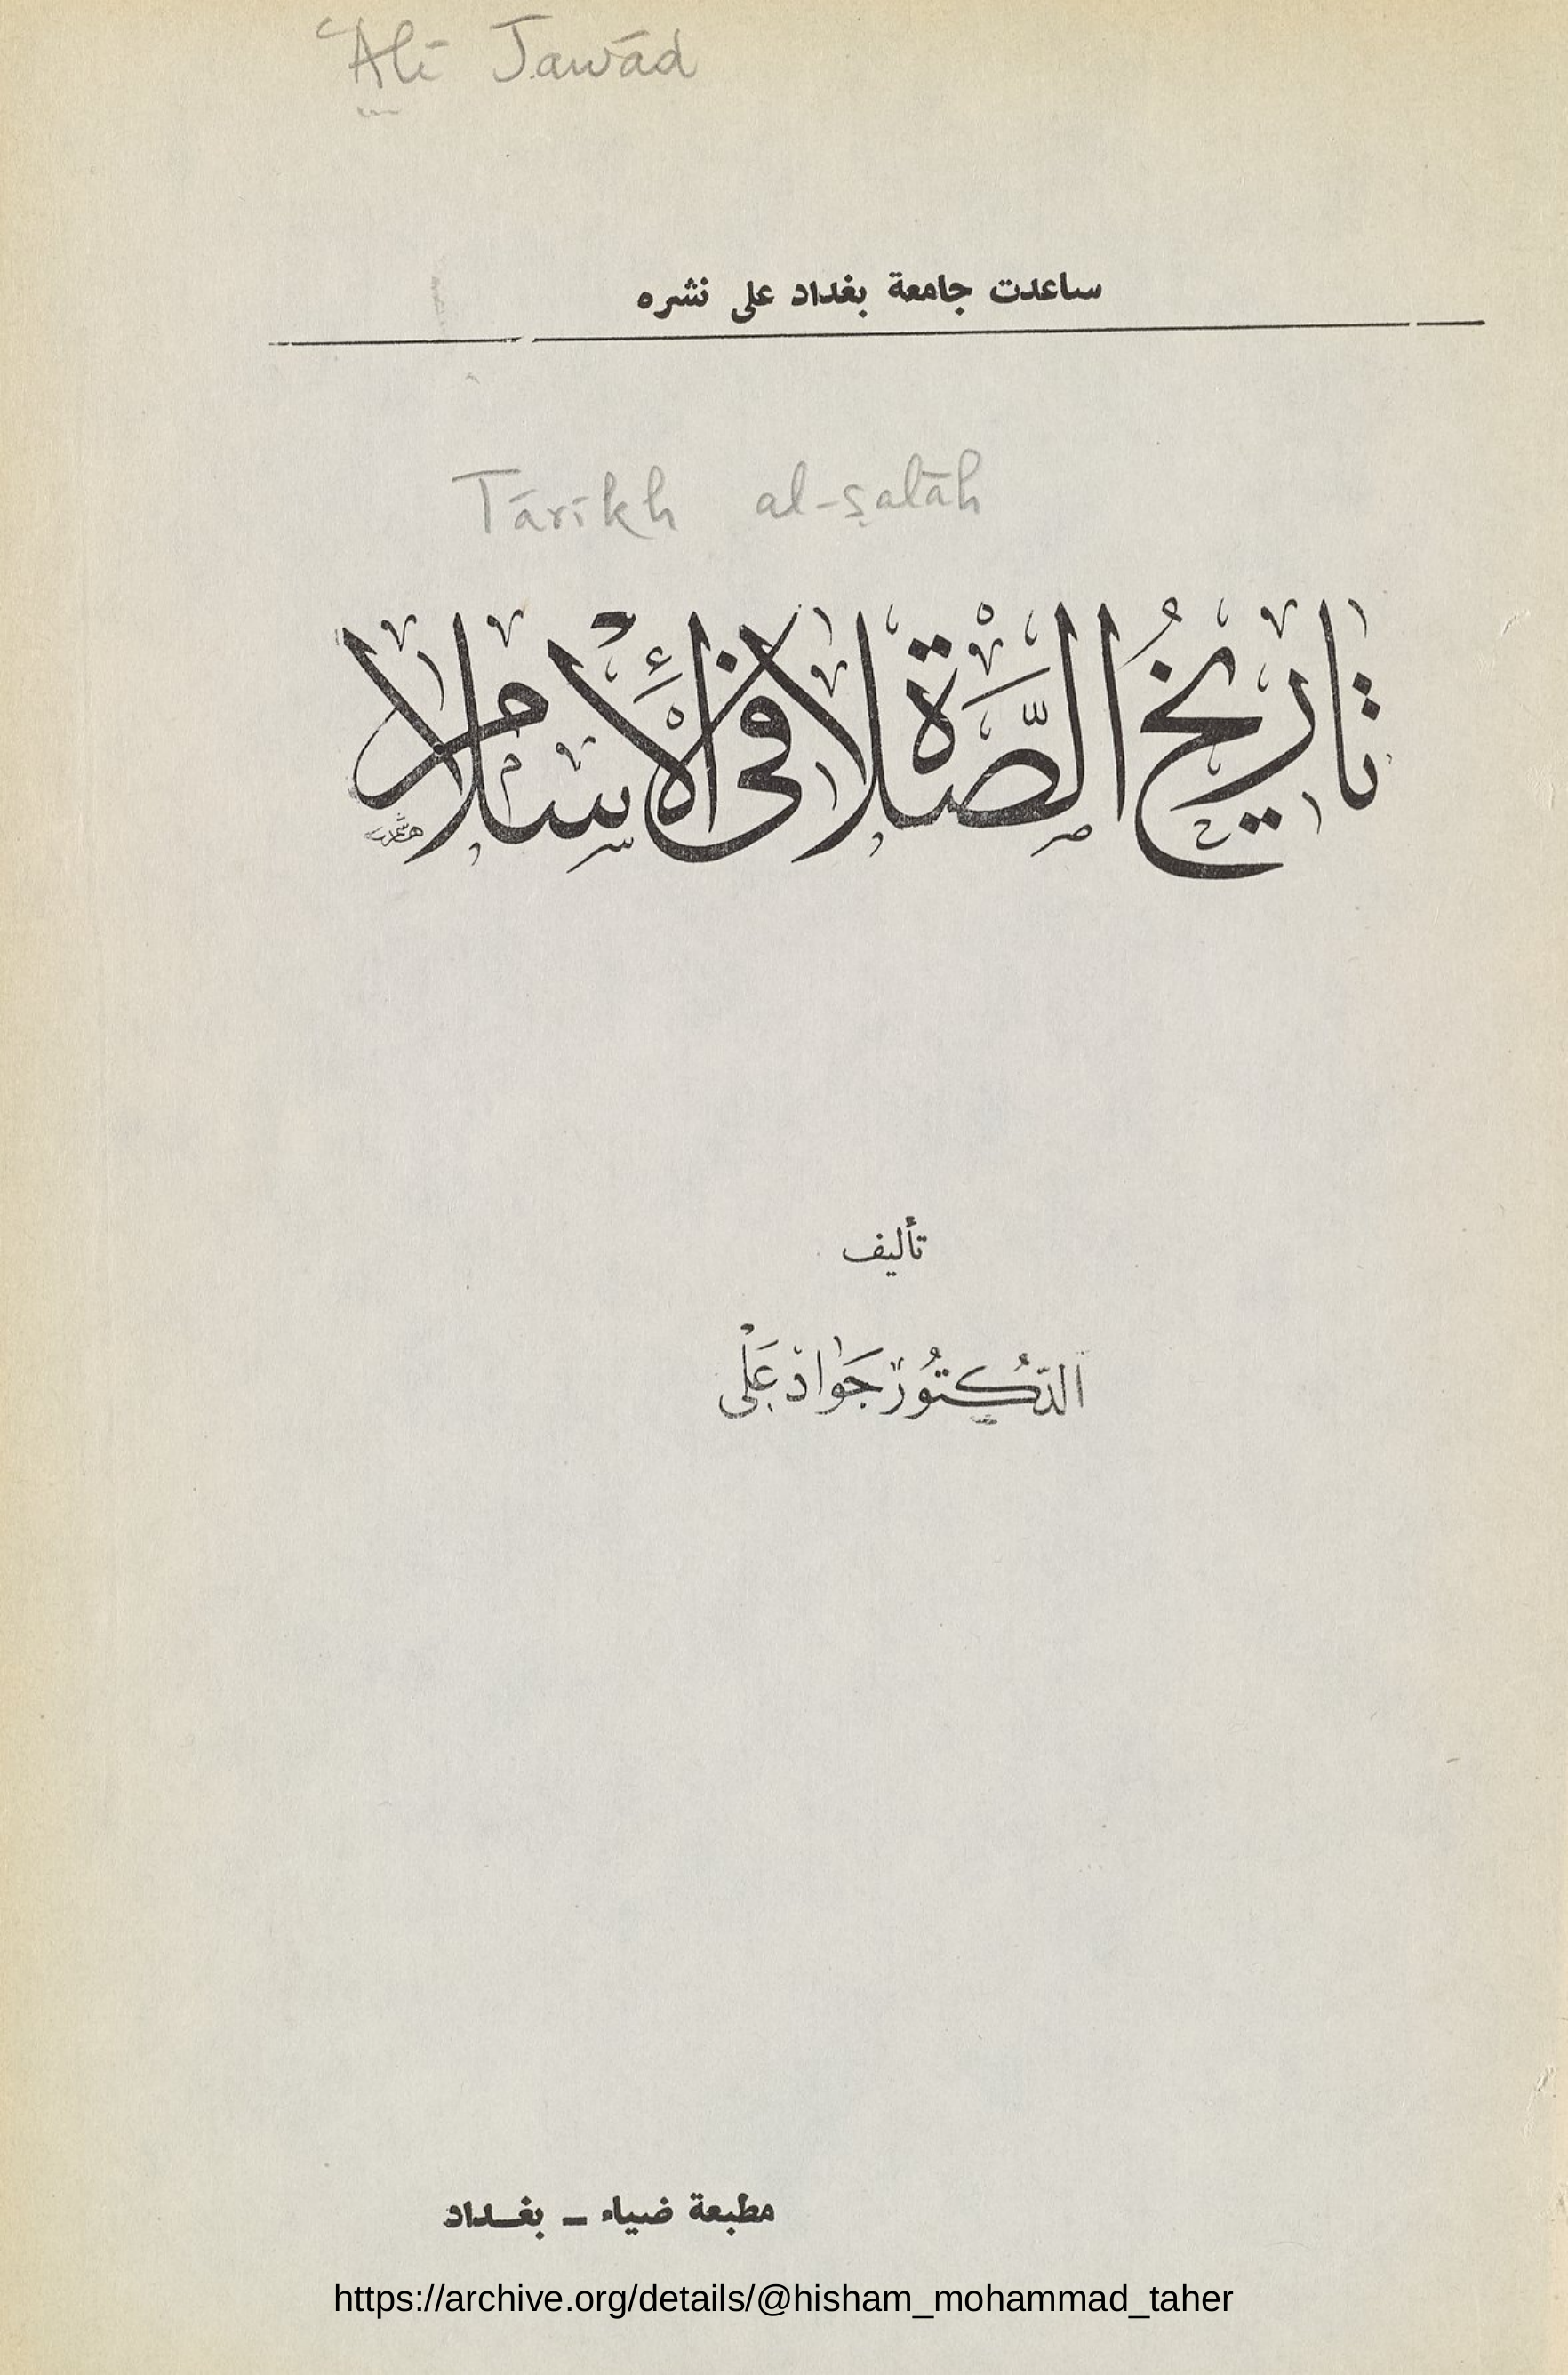 ʿAlī Jawād
ساعدت جامعة بغداد على نشره
Tārīkh al-ṣalāh
تاريخُ الصَّلاة في الأسلام
تأليف
الدّكتُور جَواد عَلي
مطبعة ضياء – بغـداد
https://archive.org/details/@hisham_mohammad_taher